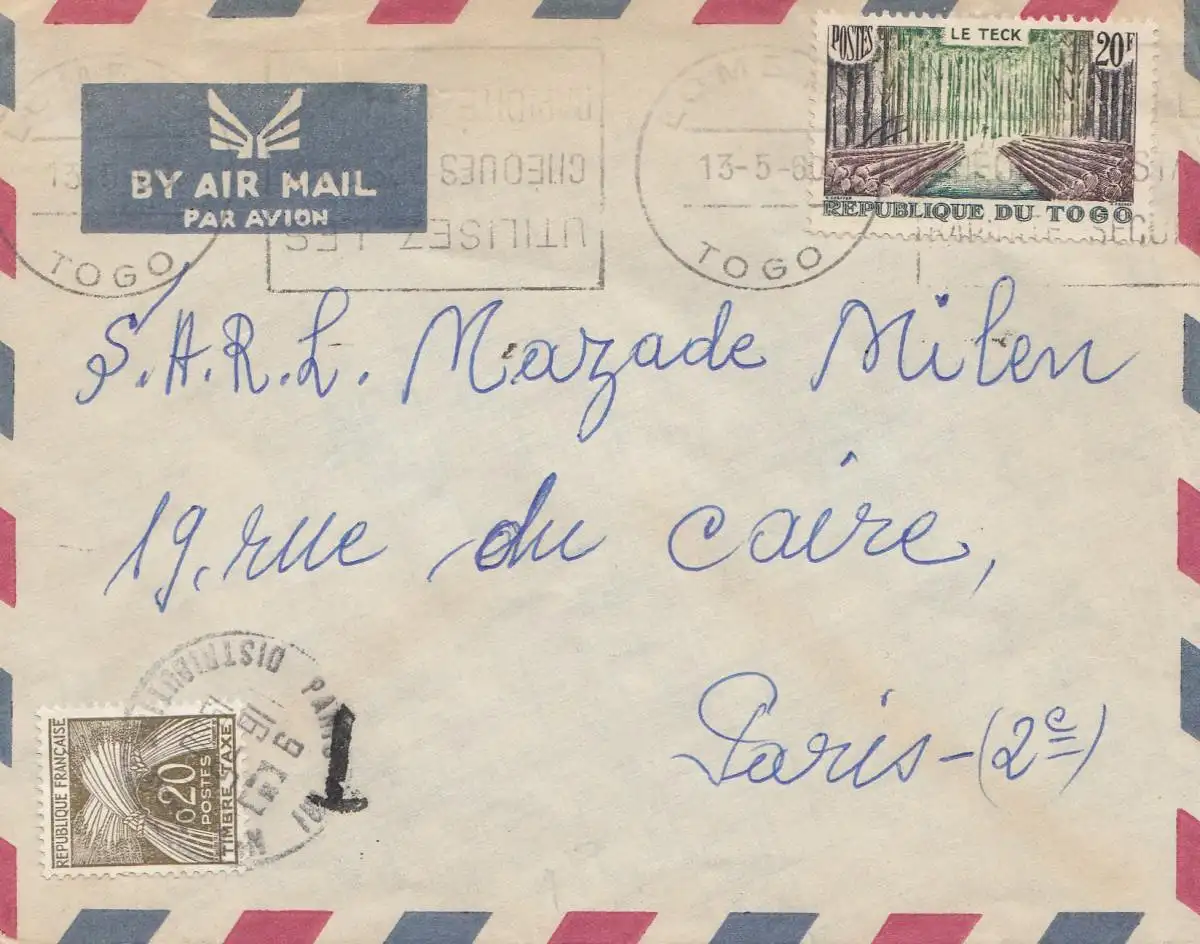 POSTES LE TECK 20F
REPUBLIQUE DU TOGO
BY AIR MAIL
PAR AVION
TOGO
CHÈQUES
UTILISEZ LES
LOME
13-5-60
TOGO
S.A.R.L. Mazade Milen
19, rue du Caire,
Paris-(2e)
REPUBLIQUE FRANÇAISE
0,20
POSTES
TIMBRE TAXE
PARIS
T